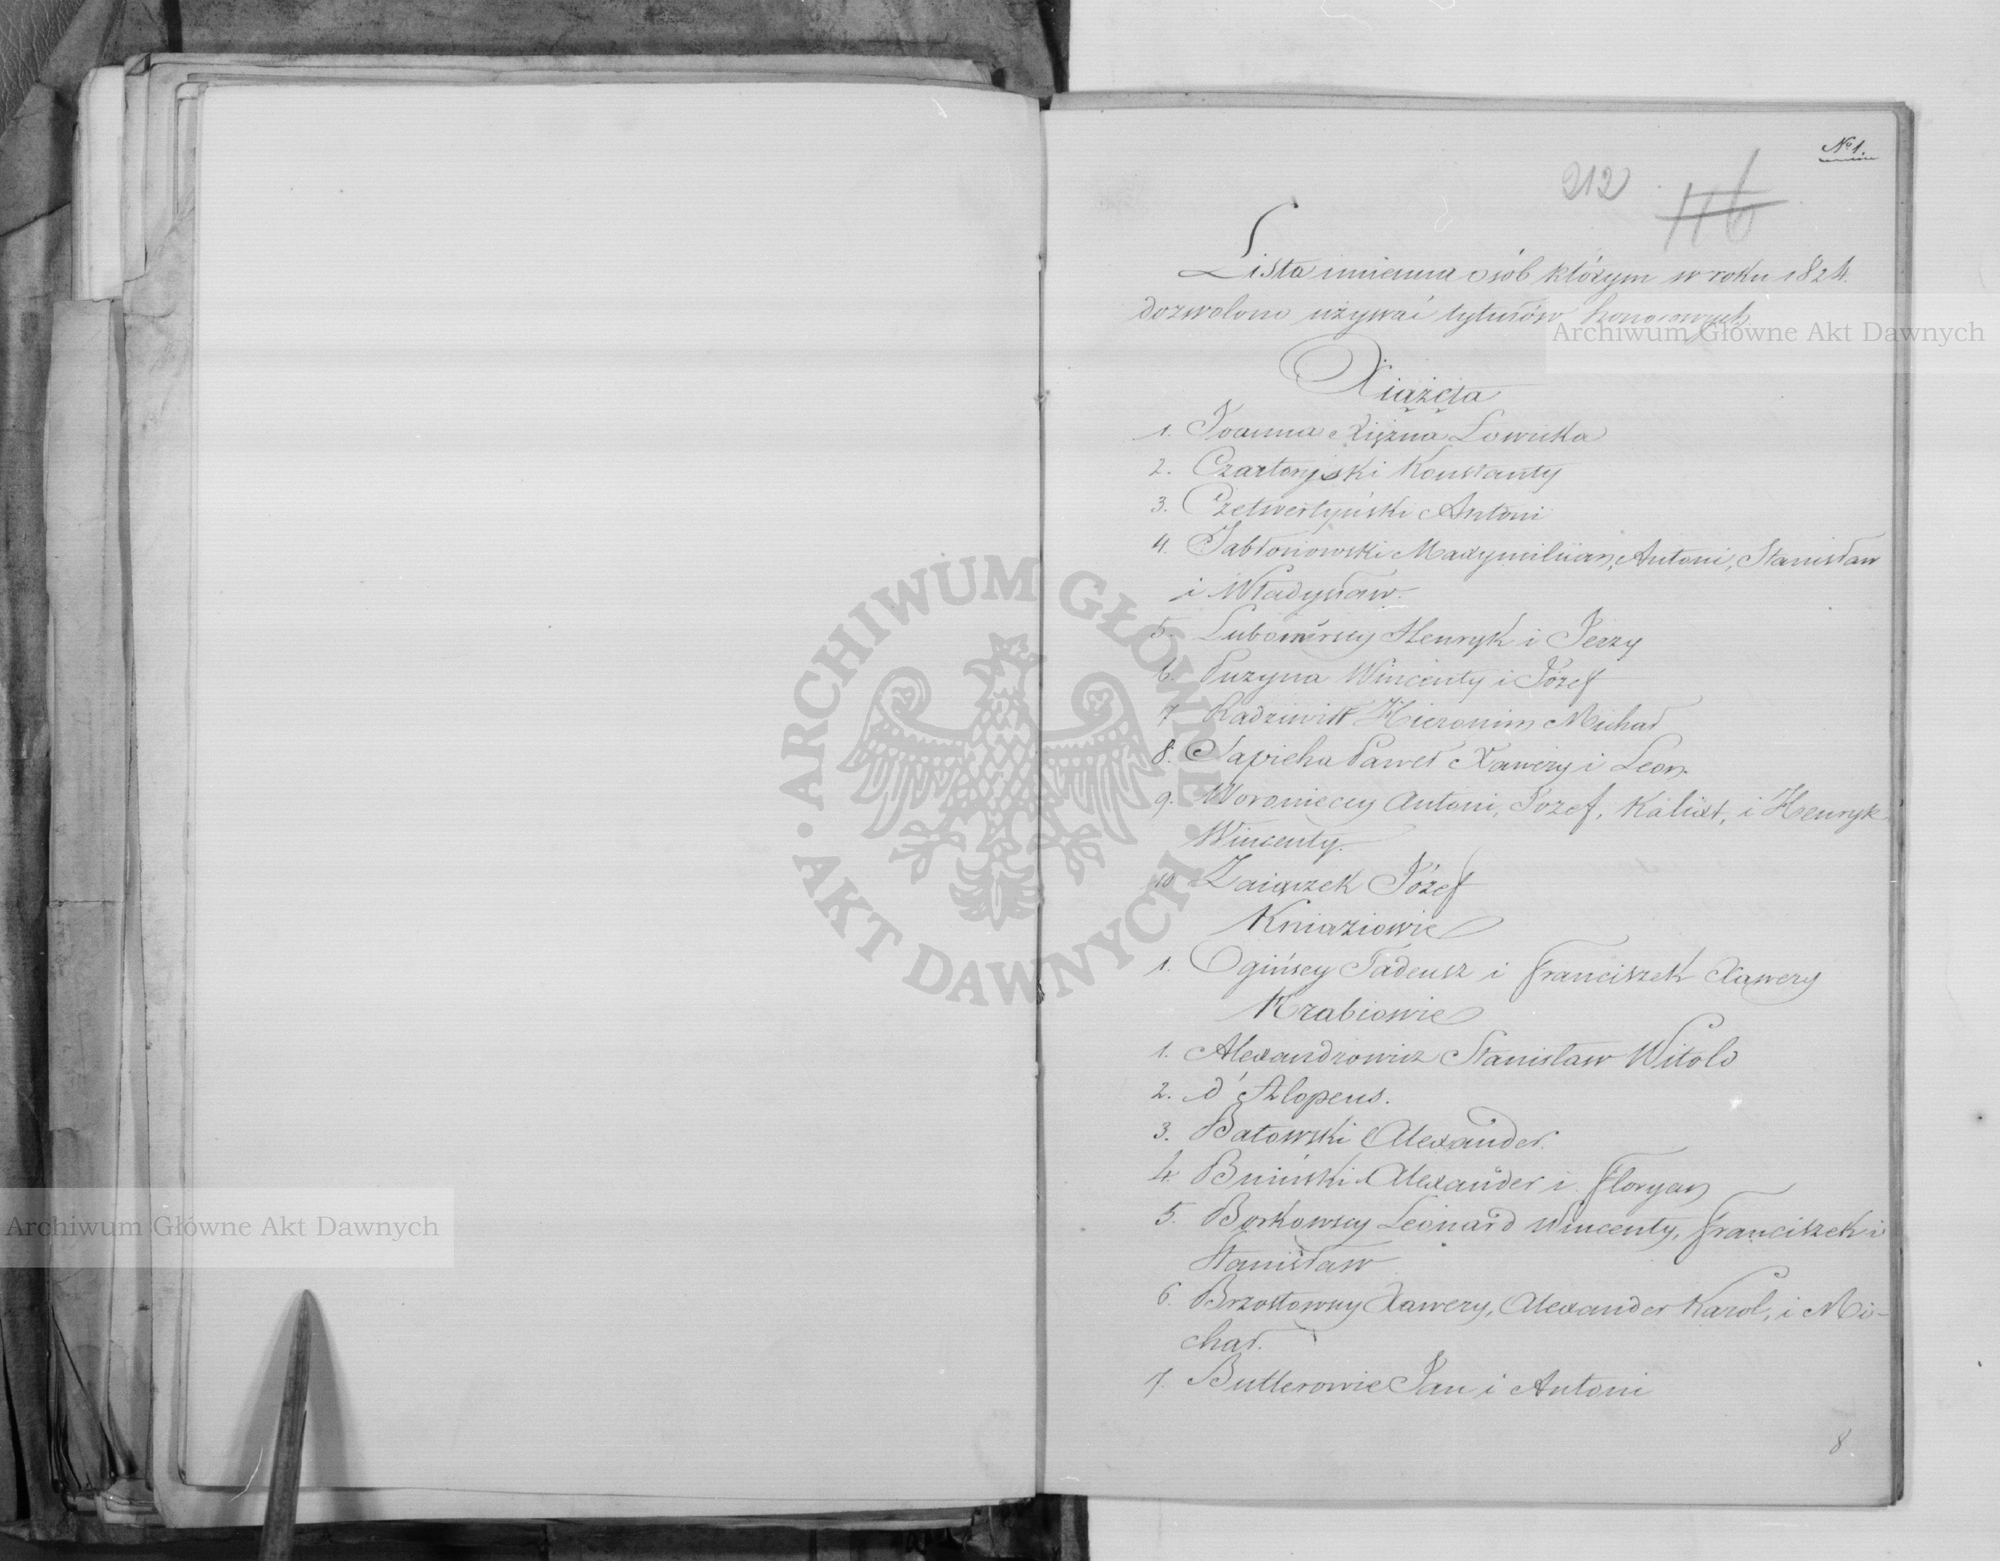 No 1.
212
116
Lista imienna osób którym w roku 1824.
dozwolono używać tytułów honorowych
Xiążęta
1. Joanna Xiężna Łowicka
2. Czartoryski Konstanty
3. Czetwertyński Antoni
4. Jabłonowski Maxymilian, Antoni, Stanisław
i Władysław.
5. Lubomirscy Henryk i Jerzy
6. Puzyna Wincenty i Józef
7. Radziwiłł Hieronim Michał
8. Sapieha Paweł Xawery i Leon.
9. Woronieccy Antoni, Józef, Kalixt, i Henryk
Wincenty.
10 Zaiączek Józef
Kniaziowie
1. Ogińscy Tadeusz i Franciszek Xawery
Hrabiowie
1. Alexandrowicz Stanisław Witold
2. d'Alopeus.
3. Batowski Alexander.
4. Bniński Alexander i Floryan
5. Borkowscy Leonard Wincenty, Franciszek i
Stanisław
6. Brzostowscy Xawery, Alexander Karol, i Mi-
chał.
7. Butlerowie Jan i Antoni
8
Archiwum Główne Akt Dawnych
Archiwum Główne Akt Dawnych
ARCHIWUM GŁÓWNE AKT DAWNYCH